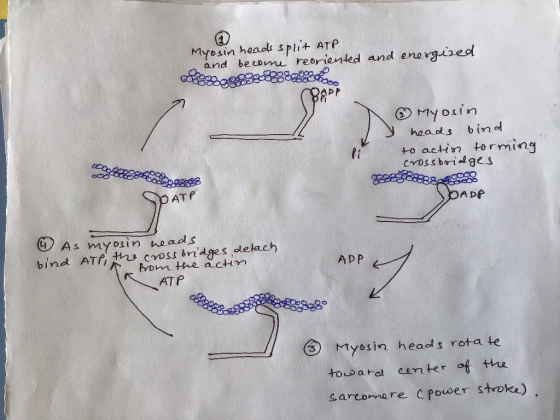 ①
Myosin heads split ATP
and become reoriented and energized
ADP
Pi
② Myosin
heads bind
to actin forming
crossbridges
Pi
ADP
ADP
③ Myosin heads rotate
toward center of the
sarcomere (power stroke).
ATP
④ As myosin heads
bind ATP, the crossbridges detach
from the actin
ATP